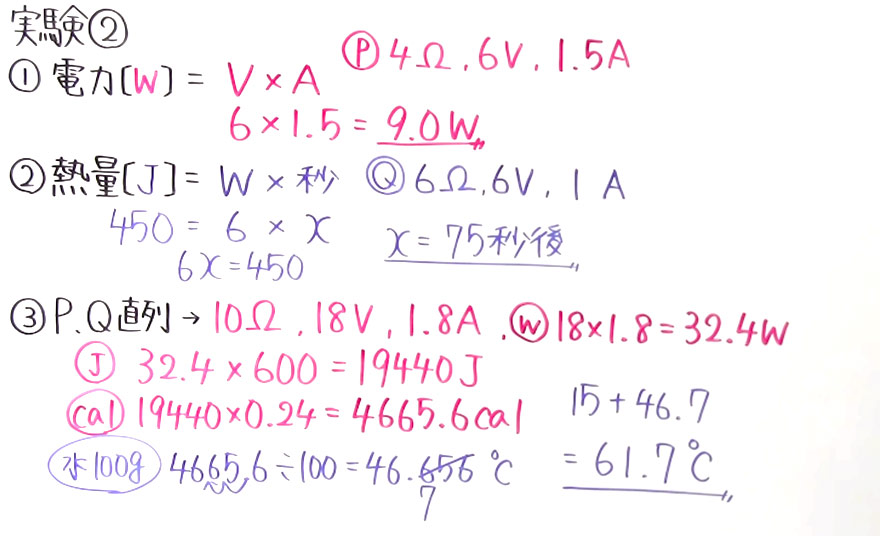 実験②
Ⓟ4Ω, 6V, 1.5A
① 電力[W] = V × A
6 × 1.5 = 9.0W
② 熱量[J] = W × 秒
Ⓠ6Ω, 6V, 1A
450 = 6 × x
6x = 450
x = 75秒後
③ P, Q直列 → 10Ω, 18V, 1.8A, Ⓦ18×1.8 = 32.4W
Ⓙ 32.4 × 600 = 19440J
cal 19440×0.24 = 4665.6cal
水100g 4665.6 ÷ 100 = 46.656 ℃
7
15 + 46.7
= 61.7℃